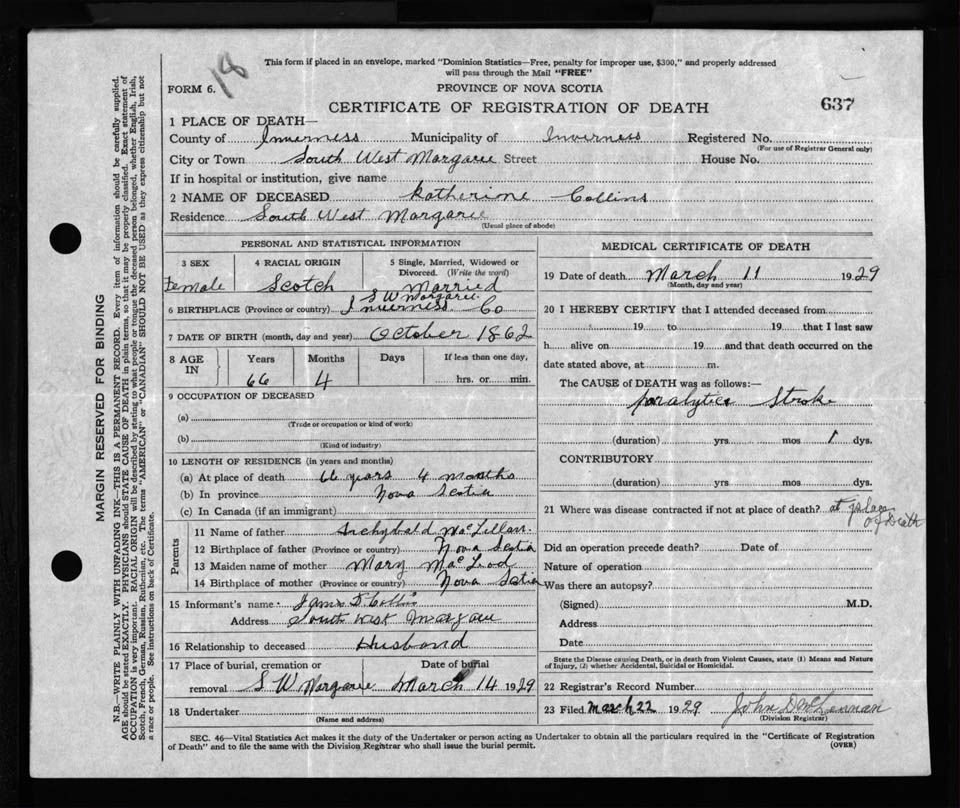 This form if placed in an envelope, marked "Dominion Statistics—Free, penalty for improper use, $300," and properly addressed
will pass through the Mail "FREE"
FORM 6.
18
PROVINCE OF NOVA SCOTIA
CERTIFICATE OF REGISTRATION OF DEATH
637
1 PLACE OF DEATH—
County of Inverness Municipality of Inverness Registered No.
(For use of Registrar General only)
City or Town South West Margaree Street House No.
If in hospital or institution, give name
2 NAME OF DECEASED Katherine Collins
Residence South West Margaree
(Usual place of abode)
PERSONAL AND STATISTICAL INFORMATION
3 SEX 4 RACIAL ORIGIN 5 Single, Married, Widowed or
Divorced. (Write the word)
Female Scotch Married
S W Margaree
6 BIRTHPLACE (Province or country) Inverness Co
7 DATE OF BIRTH (month, day and year) October 1862
8 AGE IN Years Months Days If less than one day,
66 4 hrs. or min.
9 OCCUPATION OF DECEASED
(a)
(Trade or occupation or kind of work)
(b)
(Kind of industry)
10 LENGTH OF RESIDENCE (in years and months)
(a) At place of death 66 years 4 months
(b) In province Nova Scotia
(c) In Canada (if an immigrant)
Parents
11 Name of father Archybald MacLellan
12 Birthplace of father (Province or country) Nova Scotia
13 Maiden name of mother Mary MacLeod
14 Birthplace of mother (Province or country) Nova Scotia
15 Informant's name James D Collins
Address South West Margaree
16 Relationship to deceased Husband
17 Place of burial, cremation or Date of burial
removal S W Margaree March 14 1929
18 Undertaker
(Name and address)
MEDICAL CERTIFICATE OF DEATH
19 Date of death March 11 1929
(Month, day and year)
20 I HEREBY CERTIFY that I attended deceased from
19 to 19 that I last saw
h alive on 19 and that death occurred on the
date stated above, at m.
The CAUSE OF DEATH was as follows:—
paralytic Stroke
(duration) yrs mos 1 dys.
CONTRIBUTORY
(duration) yrs mos dys.
21 Where was disease contracted if not at place of death? at place
of Death
Did an operation precede death? Date of
Nature of operation
Was there an autopsy?
(Signed) M.D.
Address
Date
State the Disease causing Death, or in death from Violent Causes, state (1) Means and Nature
of Injury, (2) whether Accidental, Suicidal or Homicidal.
22 Registrar's Record Number
23 Filed March 22 1929 John D McLennan
(Division Registrar)
SEC. 46—Vital Statistics Act makes it the duty of the Undertaker or person acting as Undertaker to obtain all the particulars required in the "Certificate of Registration
of Death" and to file the same with the Division Registrar who shall issue the burial permit.
(OVER)
MARGIN RESERVED FOR BINDING
N.B.—WRITE PLAINLY WITH UNFADING INK—THIS IS A PERMANENT RECORD. Every item of information should be carefully supplied.
AGE should be stated EXACTLY. PHYSICIANS should STATE CAUSE OF DEATH in plain terms, so that it may be properly classified. Exact statement of
OCCUPATION is very important. RACIAL ORIGIN will be described by stating to what people or tongue the deceased person belonged, whether English, Irish,
Scotch, French, German, Russian, Ruthenian, etc. The terms "AMERICAN" or "CANADIAN" SHOULD NOT BE USED as they express citizenship but not
a race or people. See instructions on back of Certificate.